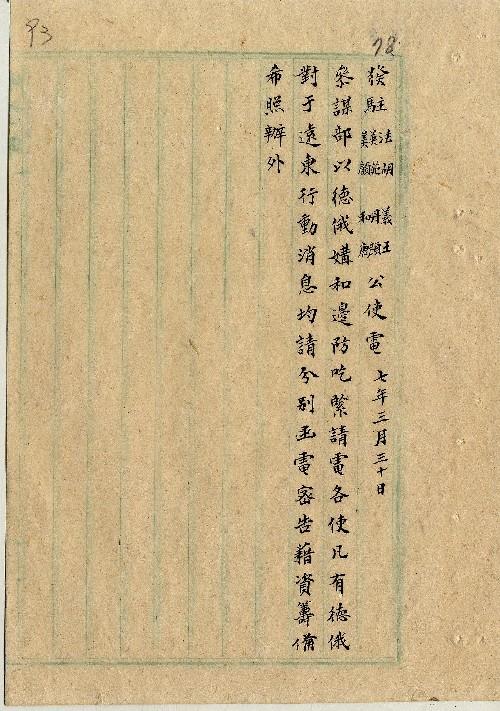 93
78
發駐法胡英施美顧義王丹顏和唐公使電 七年三月三十日
參謀部以德俄媾和邊防吃緊請電各使凡有德俄
對于遠東行動消息均請分别函電密告藉資籌備
希照辦外